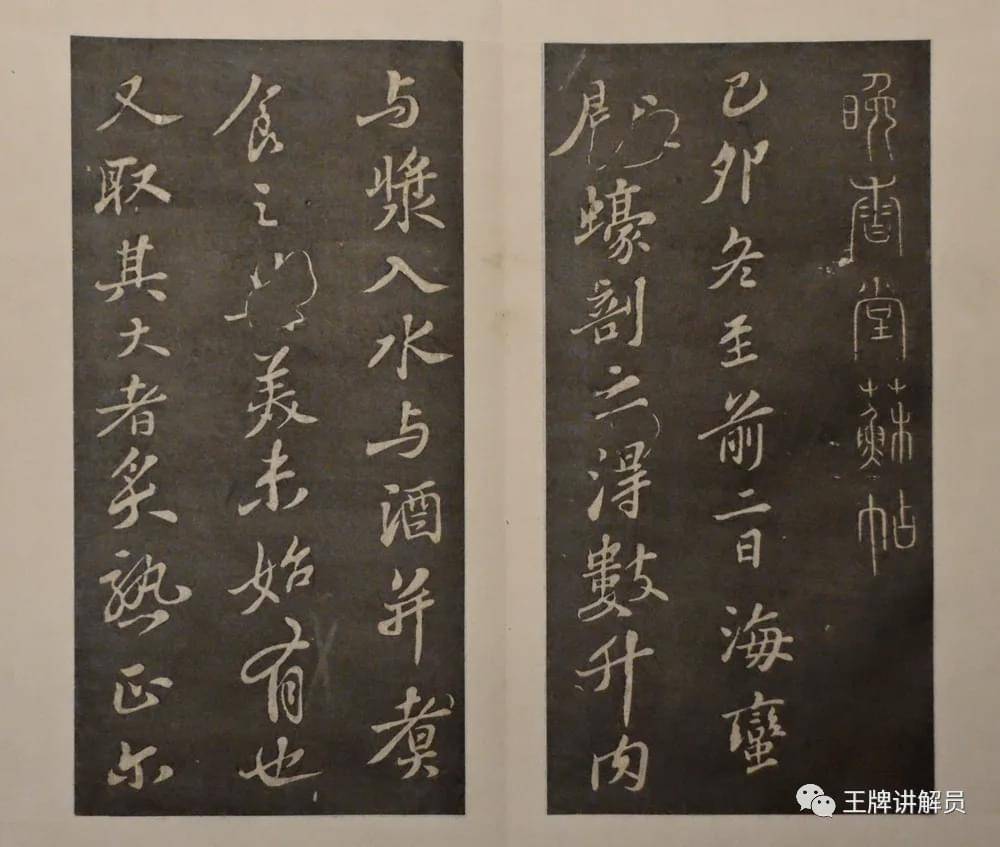 晚香堂蘇帖
己卯冬至前二日海蠻
蠔剖之得數升肉
与漿入水与酒并煮
食之美未始有也
又取其大者炙熟正尔
王牌讲解员